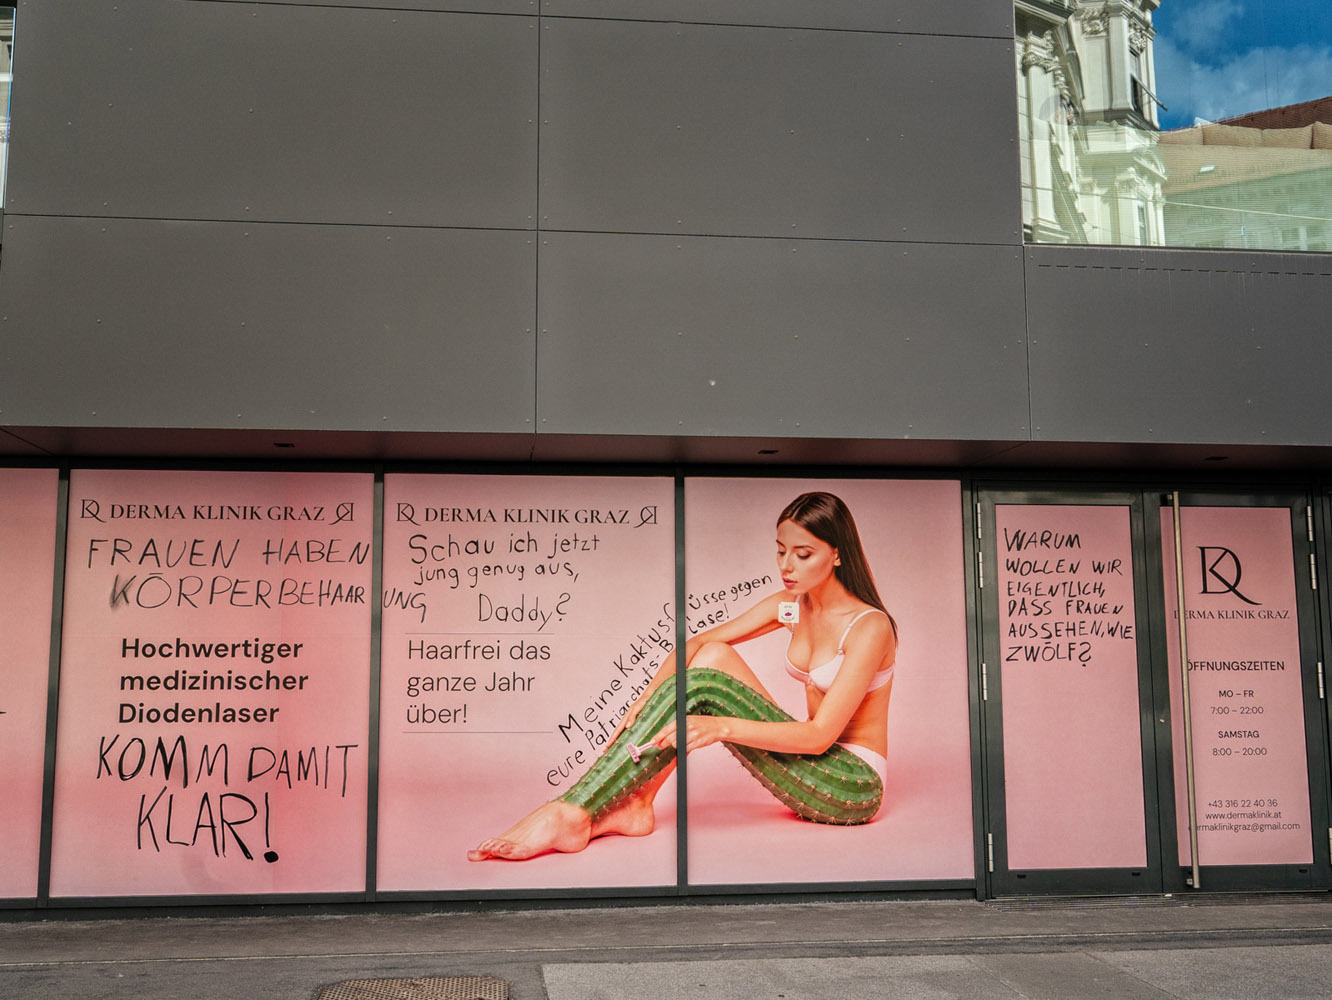 DERMA KLINIK GRAZ
FRAUEN HABEN
KÖRPERBEHAARUNG
Hochwertiger
medizinischer
Diodenlaser
KOMM DAMIT
KLAR!
DERMA KLINIK GRAZ
Schau ich jetzt
jung genug aus,
Daddy?
Haarfrei das
ganze Jahr
über!
Meine Kaktusfüsse gegen
eure Patriarchats-Blase!
WARUM
WOLLEN WIR
EIGENTLICH,
DASS FRAUEN
AUSSEHEN, WIE
ZWÖLF?
DERMA KLINIK GRAZ
ÖFFNUNGSZEITEN
MO – FR
7:00 – 22:00
SAMSTAG
8:00 – 20:00
+43 316 22 40 36
www.dermaklinik.at
ermaklinikgraz@gmail.com